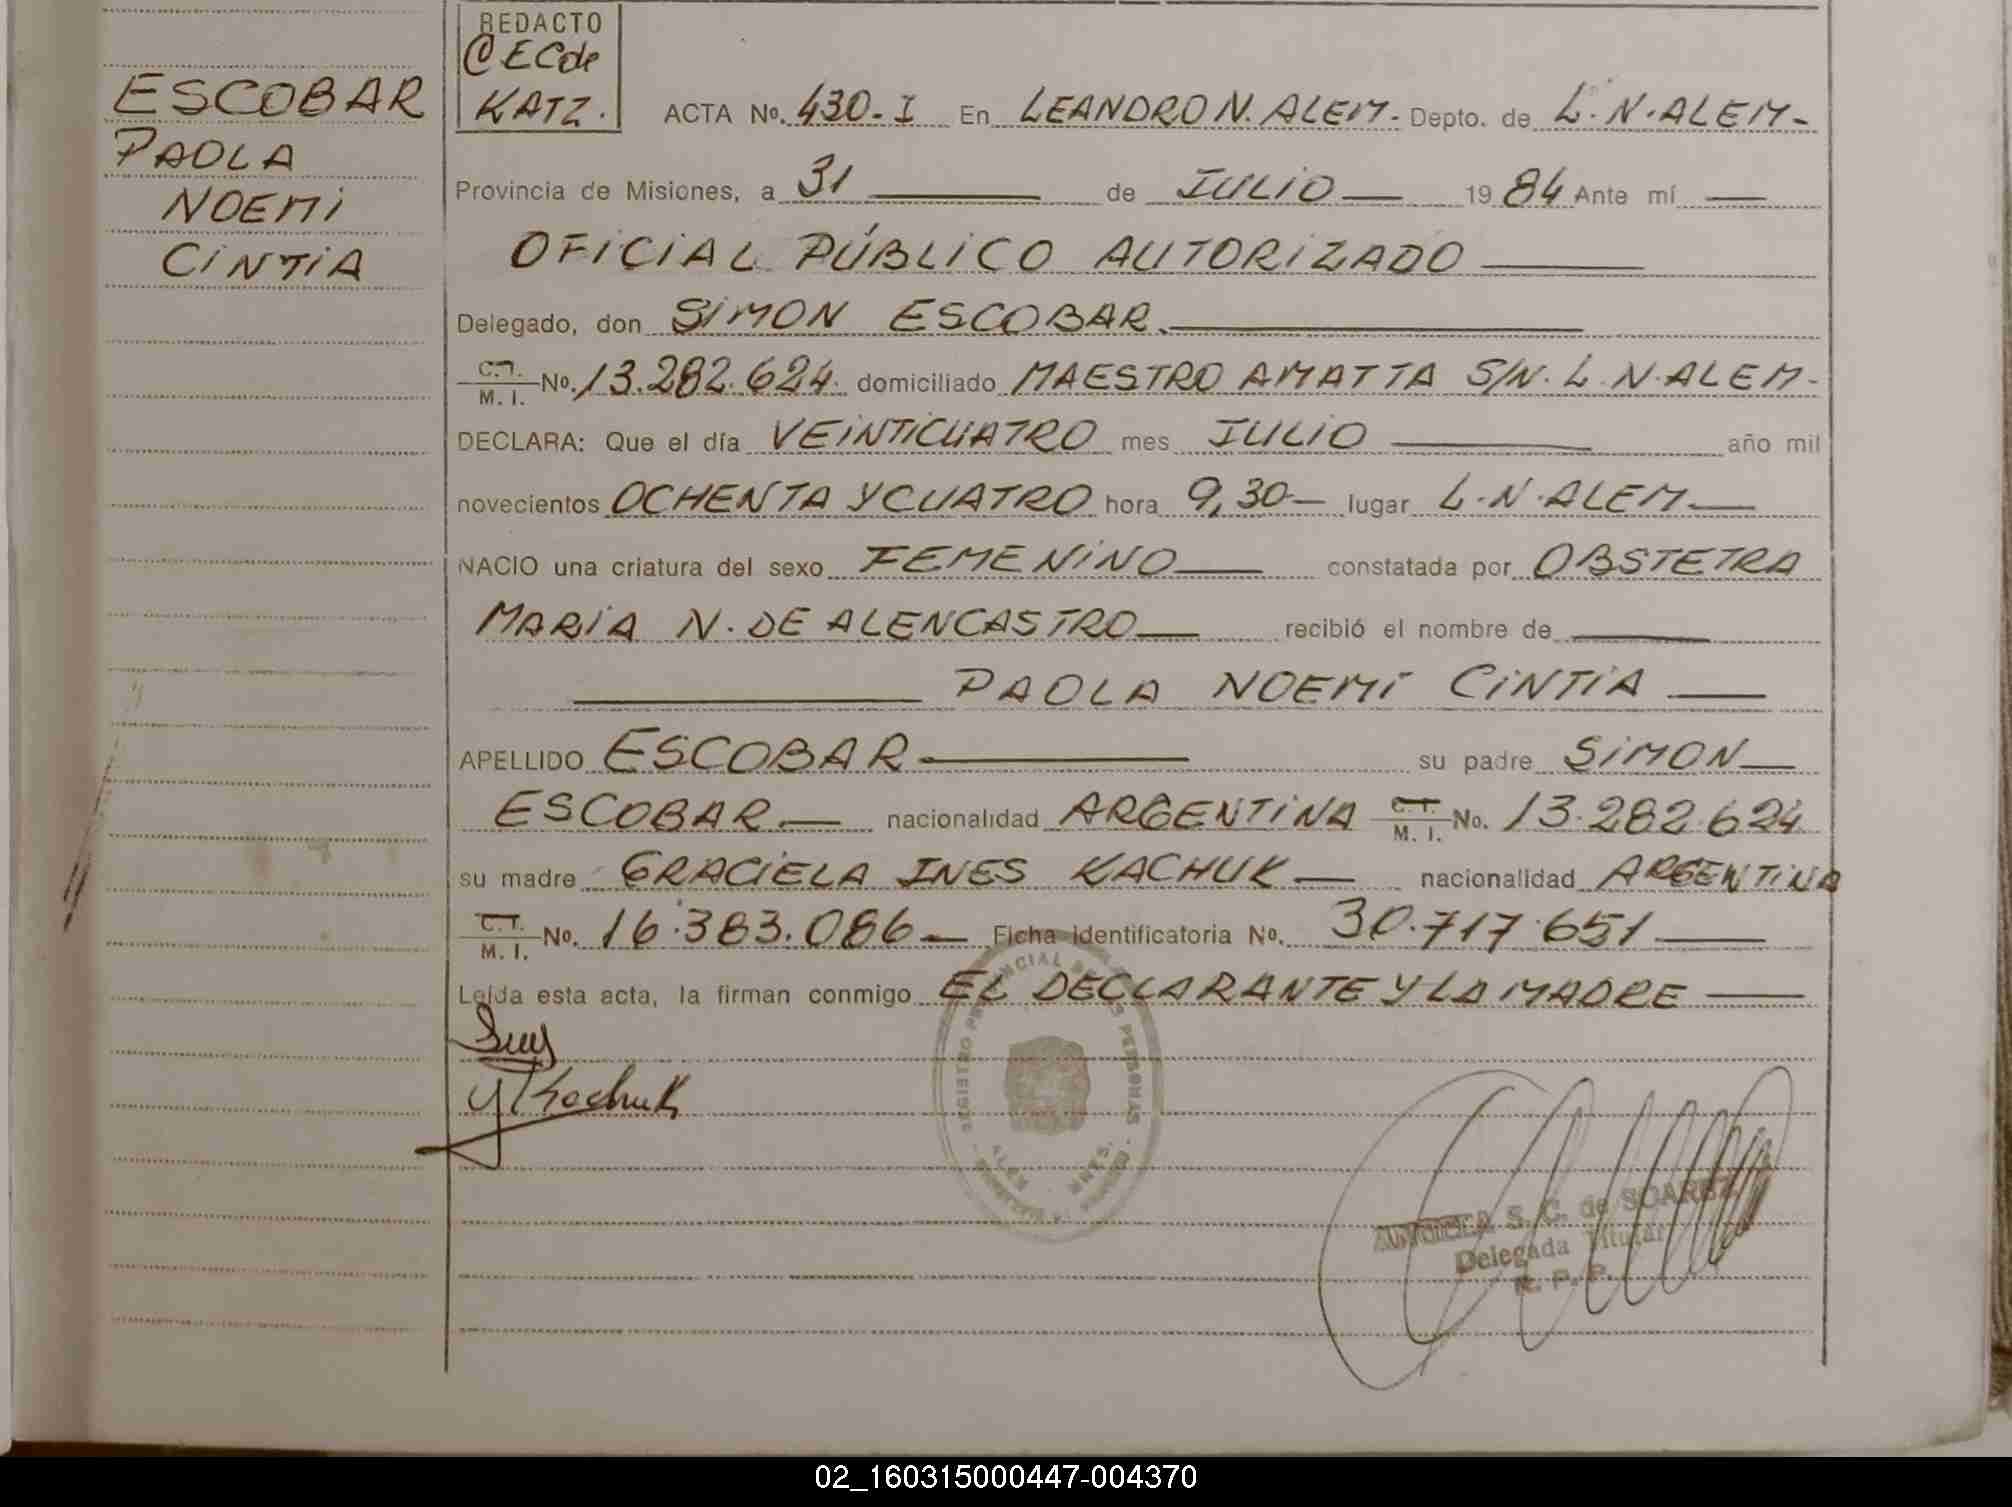 ESCOBAR
PAOLA
NOEMI
CINTIA
REDACTO
CEC de
KATZ.
ACTA No. 430-I En LEANDRO N. ALEM- Depto. de L.N.ALEM-
Provincia de Misiones, a 31 de JULIO 1984 Ante mí
OFICIAL PÚBLICO AUTORIZADO
Delegado, don SIMON ESCOBAR.
C.I.
M. I. No. 13.282.624. domiciliado MAESTRO AMATTA S/N. L.N.ALEM-
DECLARA: Que el día VEINTICUATRO mes JULIO año mil
novecientos OCHENTA Y CUATRO hora 9,30- lugar L.N.ALEM
NACIO una criatura del sexo FEMENINO constatada por OBSTETRA
MARIA N. DE ALENCASTRO recibió el nombre de
PAOLA NOEMI CINTIA
APELLIDO ESCOBAR su padre SIMON
ESCOBAR nacionalidad ARGENTINA C.I.
M. I. No. 13.282.624
su madre GRACIELA INES KACHUK nacionalidad ARGENTINA
C.I.
M. I. No. 16.383.086 Ficha identificatoria No. 30.717.651
Leída esta acta, la firman conmigo EL DECLARANTE Y LA MADRE
Kachuk
REGISTRO PROVINCIAL DE LAS PERSONAS
S. C. de SOAREZ
Delegada Titular
R. P. P.
02_160315000447-004370